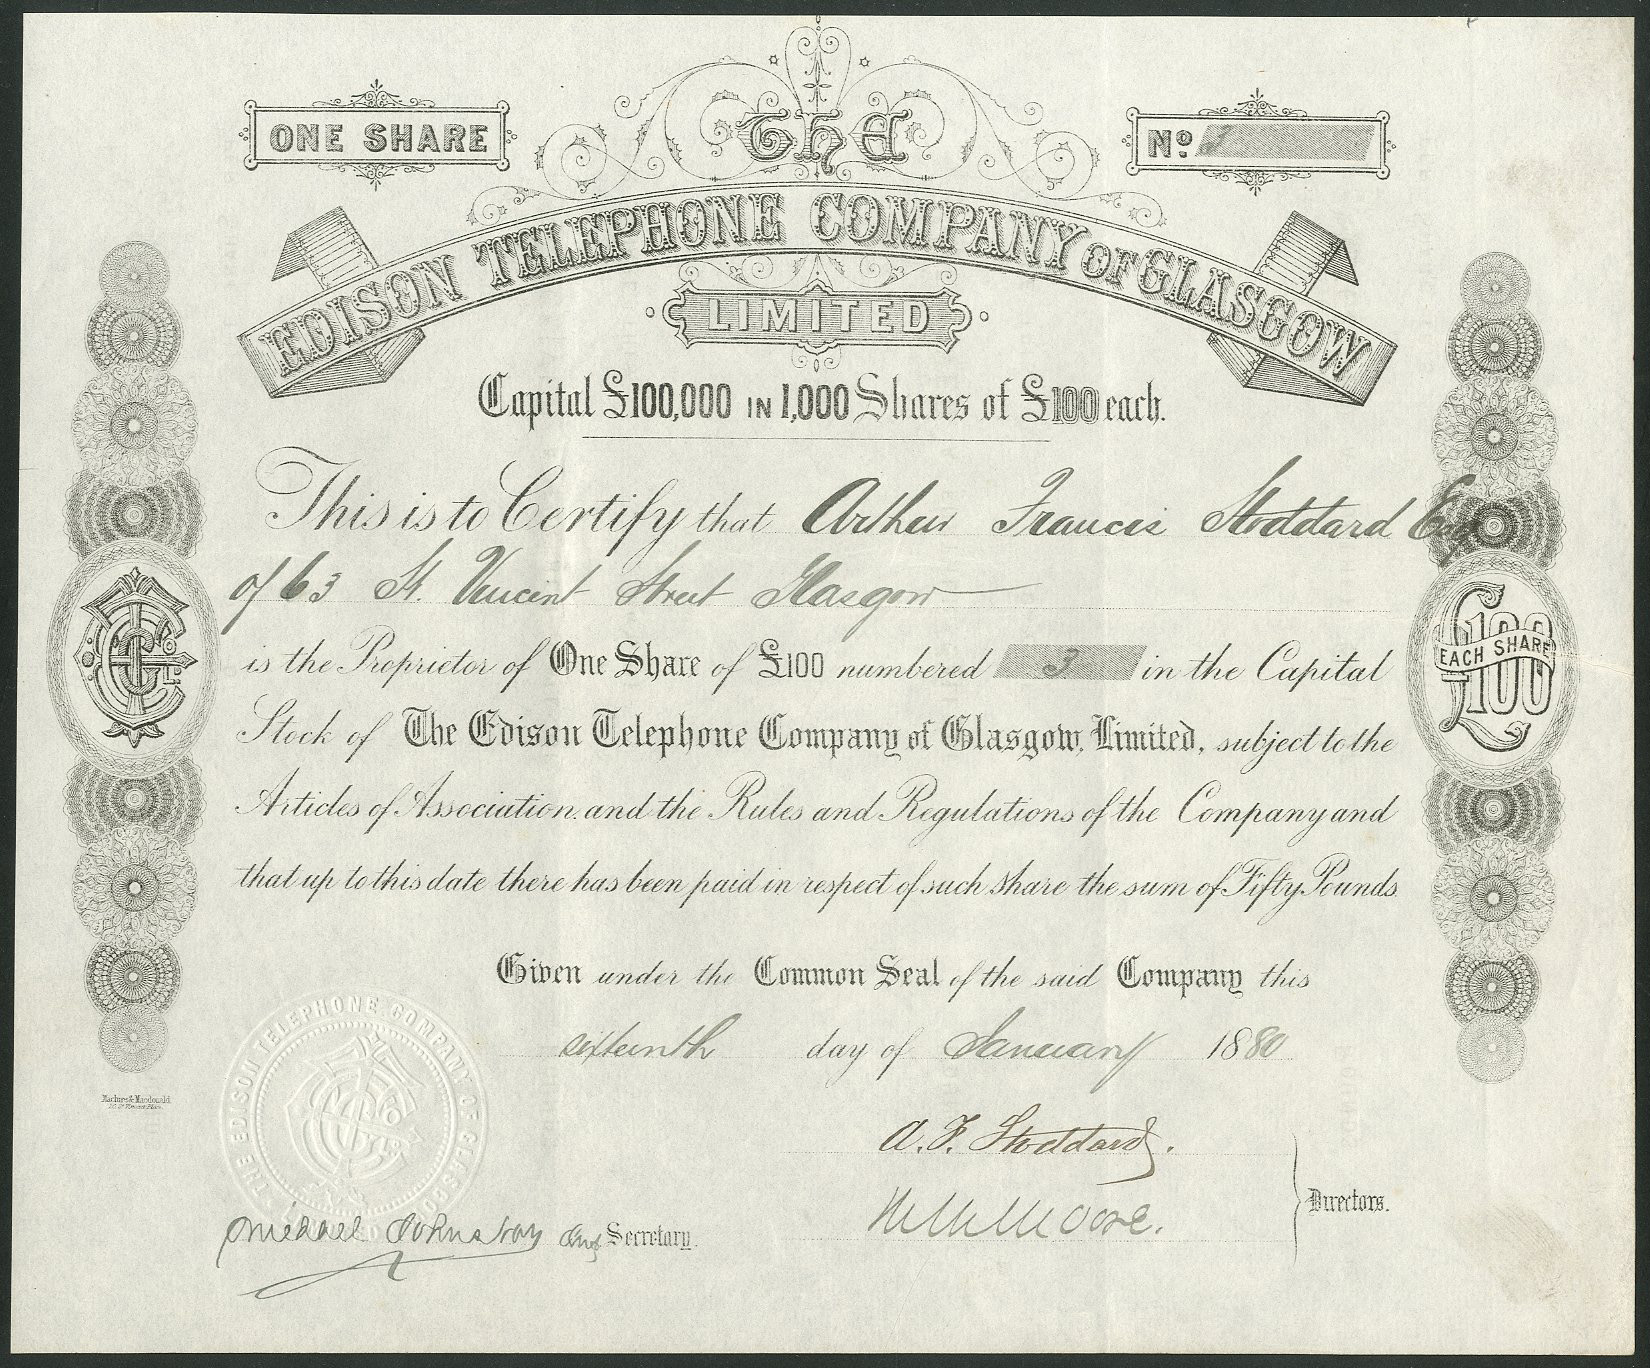 ONE SHARE
The
No. 3
EDISON TELEPHONE COMPANY OF GLASGOW
LIMITED
Capital £100,000 IN 1,000 Shares of £100 each.
This is to Certify that Arthur Francis Stoddard Esq
of 63 St. Vincent Street Glasgow
is the Proprietor of One Share of £100 numbered 3 in the Capital
Stock of The Edison Telephone Company of Glasgow, Limited, subject to the
Articles of Association and the Rules and Regulations of the Company and
that up to this date there has been paid in respect of such Share the sum of Fifty Pounds
£100
EACH SHARE
Given under the Common Seal of the said Company this
sixteenth day of January 1880
THE EDISON TELEPHONE COMPANY OF GLASGOW LIMITED
Maclure & Macdonald
A. F. Stoddard.
Moore.
Directors.
Michael Johnston Secretary